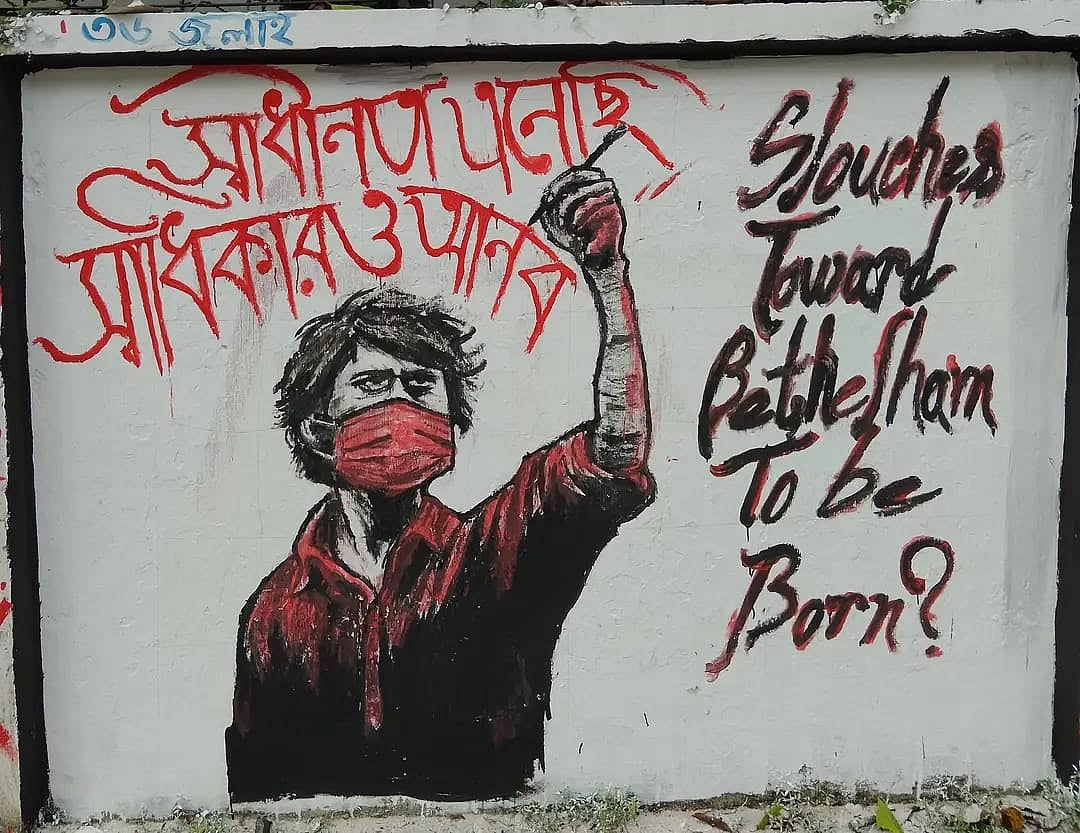 ৩৬ জুলাই
স্বাধীনতা এনেছি
স্বাধিকার ও আনব
Slouches
Toward
BetheSham
To be
Born?